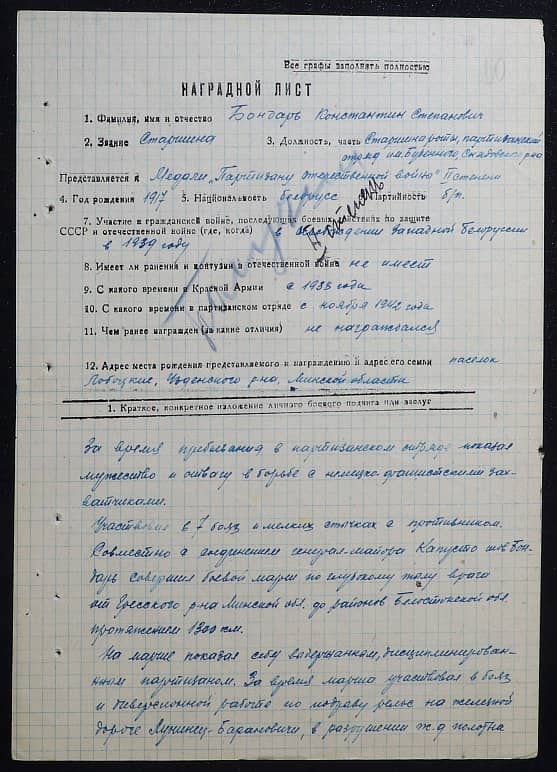 Все графы заполнять полностью
НАГРАДНОЙ ЛИСТ
1. Фамилия, имя и отчество Бондарь Константин Степанович
2. Звание Старшина 3. Должность, часть Старшина роты, партизанский
отряд им. Буденного,
Представляется к Медали "Партизану отечественной войны" II степени
4. Год рождения 1917 5. Национальность белорусс Партийность б/п.
7. Участие в гражданской войне, последующих боевых действиях по защите
СССР и отечественной войне (где, когда) в освобождении Западной Белоруссии
в 1939 году
8. Имеет ли ранения и контузии в отечественной войне не имеет
9. С какого времени в Красной Армии с 1938 года
10. С какого времени в партизанском отряде с ноября 1942 года
11. Чем ранее награжден (за какие отличия) не награждался
12. Адрес места рождения представляемого к награждению и адрес его семьи поселок
Узденского р-на, Минской области
1. Краткое, конкретное изложение личного боевого подвига или заслуг
За время пребывания в партизанском отряде показал
мужество и отвагу в борьбе с немецко-фашистскими зах-
ватчиками.
Участвовал в 7 боях и мелких стычках с противником.
Совместно с соединением генерал-майора Капусто тов. Бон-
дарь совершил боевой марш по глубокому тылу врага
от Гресского р-на Минской обл. до районов Белостокской обл.
протяжением 1300 км.
На марше показал себя выдержанным, дисциплинирован-
ным партизаном. За время марша участвовал в боях
и диверсионной работе по подрыву рельс на железной
дороге Лунинец-Барановичи, в разрушении ж.д. полотна